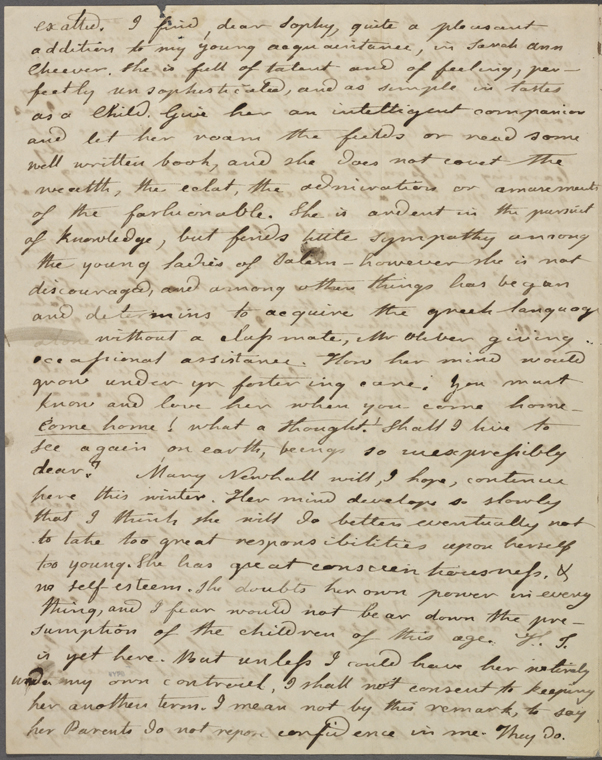 exalted. I find, dear Sophy, quite a pleasant
addition to my young acquaintance, in Sarah Ann
Cheever. She is full of talent and of feeling, per-
fectly unsophisticated, and as simple in tastes
as a Child. Give her an intelligent companion
and let her roam the fields or read some
well written book, and she does not covet the
wealth, the eclat, the admiration or amusements
of the fashionable. She is ardent in the pursuit
of knowledge, but finds little sympathy among
the young ladies of Salem – however she is not
discouraged, and among other things has began
and determins to acquire the greek language
without a classmate, Mr Oliver giving
occassional assistance. How her mind would
grow under yr fostering care! You must
know and love her when you come home –
Come home! what a thought! Shall I live to
see again, on earth, beings so inexpressibly
dear? Mary Newhall will, I hope, continue
here this winter. Her mind develops so slowly
that I think she will do better eventually not
to take too great responsibilities upon herself
too young. She has great conscientiousness, &
no self esteem. She doubts her own power in every
thing, and I fear would not bear down the pre-
sumption of the children of this age. H. T.
is yet here. But unless I could have her intirely
under my own controul, I shall not consent to keeping
her another term. I mean not by this remark, to say
her Parents do not repose confidence in me. They do.